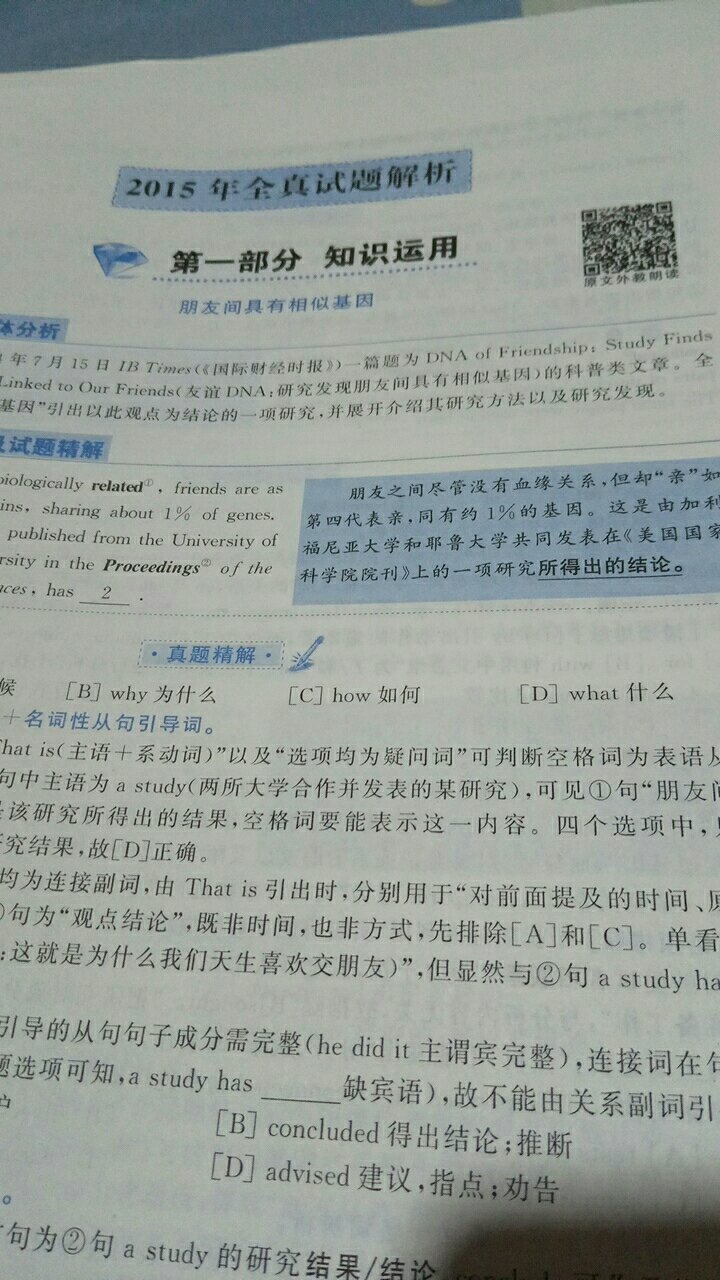 2015 年全真试题解析
第一部分 知识运用
原文外教朗读
朋友间具有相似基因
体分析
年 7 月 15 日 IB Times(《国际财经时报》)一篇题为 DNA of Friendship: Study Finds
Linked to Our Friends(友谊 DNA:研究发现朋友间具有相似基因)的科普类文章。全
基因”引出以此观点为结论的一项研究,并展开介绍其研究方法以及研究发现。
试题精解
biologically related①, friends are as
ins, sharing about 1% of genes.
published from the University of
rsity in the Proceedings② of the
ces, has 2 .
朋友之间尽管没有血缘关系,但却“亲”如
第四代表亲,同有约 1%的基因。这是由加利
福尼亚大学和耶鲁大学共同发表在《美国国家
科学院院刊》上的一项研究所得出的结论。
·真题精解·
候 [B] why 为什么 [C] how 如何 [D] what 什么
+名词性从句引导词。
That is(主语+系动词)”以及“选项均为疑问词”可判断空格词为表语从
句中主语为 a study(两所大学合作并发表的某研究),可见①句“朋友间
该研究所得出的结果,空格词要能表示这一内容。四个选项中,
究结果,故[D]正确。
均为连接副词,由 That is 引出时,分别用于“对前面提及的时间、原
句为“观点结论”,既非时间,也非方式,先排除[A]和[C]。单看
:这就是为什么我们天生喜欢交朋友)”,但显然与②句 a study ha
引导的从句句子成分需完整(he did it 主谓宾完整),连接词在句
题选项可知,a study has ______缺宾语),故不能由关系副词引
[B] concluded 得出结论;推断
[D] advised 建议,指点;劝告
。
句为②句 a study 的研究结果/结论